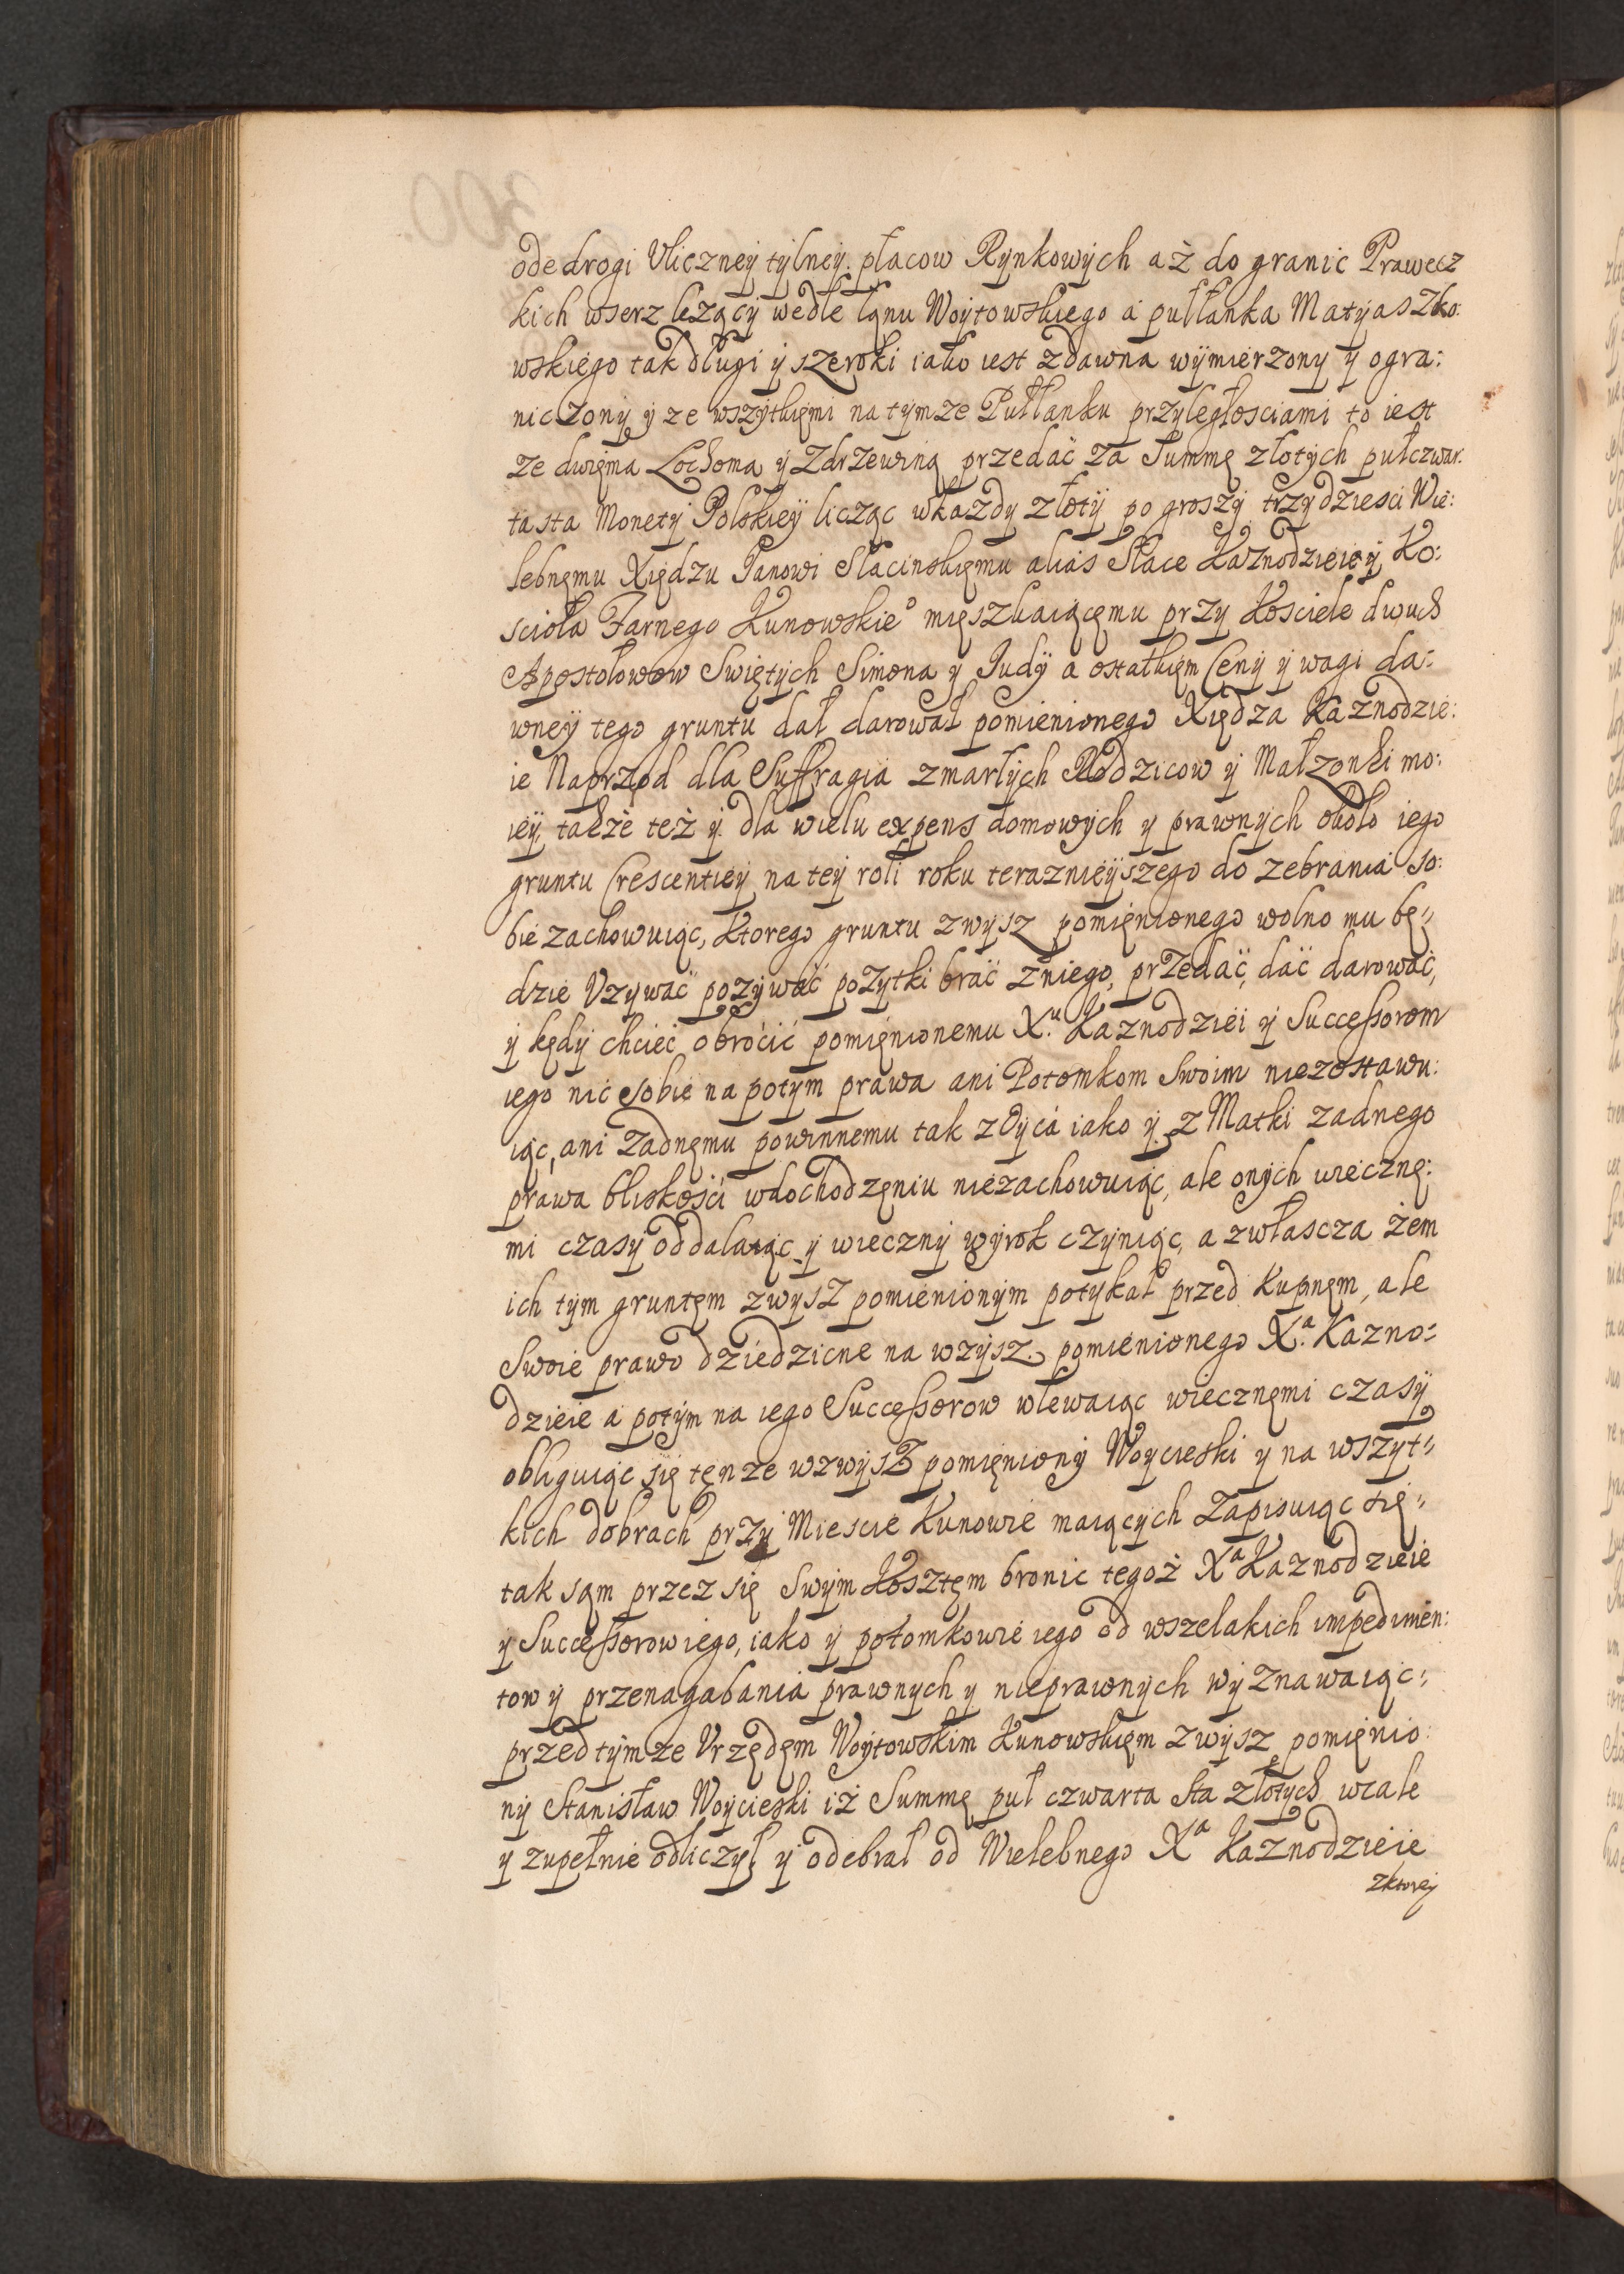 ode drogi Uliczneÿ tÿlneÿ placow Rÿnkowÿch aż do granic Prawęcz
kich wserz lezący wedle lanu Woÿtowskiego a pułłanka Matÿaszko:
wskiego tak długi ÿ szeroki iako iest zdawna wÿmierzony ÿ ogra:
niczonÿ ÿ ze wszÿtkięmi na tÿmze Pułłanku przÿległosciami to iest
ze dwięma Lochoma ÿ Zdrzewiną przedać za Summę złotÿch pułczwar:
tasta Monetÿ Polskieÿ licząc wkażdy złotÿ po groszÿ trzÿdziesci Wie:
lebnęmu Xiędzu Janowi Słacinskięmu alias Słace Kaznodzieieÿ Ko:
scioła Farnego Kunowskieº mięszkaiącęmu przy Kosciele dwuch
Apostołowow Swiętÿch Simona y Judÿ a ostatkięm Cenÿ ÿ wagi da:
wneÿ tego gruntu dał darował pomienionego Xiędza Kaznodzie:
ie Naprzod dla Suffragia zmarłÿch Rodzicow ÿ Małzonki mo:
ieÿ także też ÿ dla wielu expens domowÿch y prawnÿch około iego
gruntu Crescentieÿ na teÿ roli roku teraznieÿszego do zebrania so:
bie zachowuiąc, Ktorego gruntu zwÿsz pomięnionego wolno mu bę:
dzie Uzÿwać pozÿwać pozÿtki brać zniego, przedać, dać darować,
ÿ kędÿ chcieć obroćić pomięnionemu X.ᵘ Kaznodziei ÿ Successorom
iego nic sobie na potÿm prawa ani Potomkom Swoim niezostawu:
iąc, ani Zadnęmu powinnemu tak z Oÿca iako ÿ z Matki zadnego
prawa bliskości wdochodzęniu niezachowuiąc, ale onÿch wiecznę:
mi czasÿ oddalaiąc ÿ wiecznÿ wÿrok czÿniąc, a zwłascza żem
ich tÿm gruntęm zwÿsz pomienionÿm potÿkał przed Kupnęm, ale
Swoie prawo dziedzicne na wzÿsz. pomienionego X.ᵃ Kazno:
dzieie a potÿm na iego Successorow wlewaiąc wiecznęmi czasÿ
obliguiąc się tęnze wzwÿsz pomięnionÿ Woÿcieski y na wszÿt:
kich dobrach przÿ Miescie Kunowie maiącÿch Zapisuiąc się:
tak sąm przez się Swÿm Kosztęm bronic tegoż Xᵃ Kaznodzieie
ÿ Successorow iego, iako ÿ potomkowie iego od wszelakich impedimen:
tow ÿ przenagabania prawnych ÿ nieprawnÿch wÿznawaiąc:
przed tÿmze Vrzędęm Woÿtowskim Kunowskięm zwÿsz pomięnio:
nÿ Stanisław Woÿcieski iż Summę puł czwarta sta złotÿch wcale
ÿ zupełnie odliczÿł ÿ odebrał od Wielebnego Xᵃ Kaznodzieie
zktoreÿ